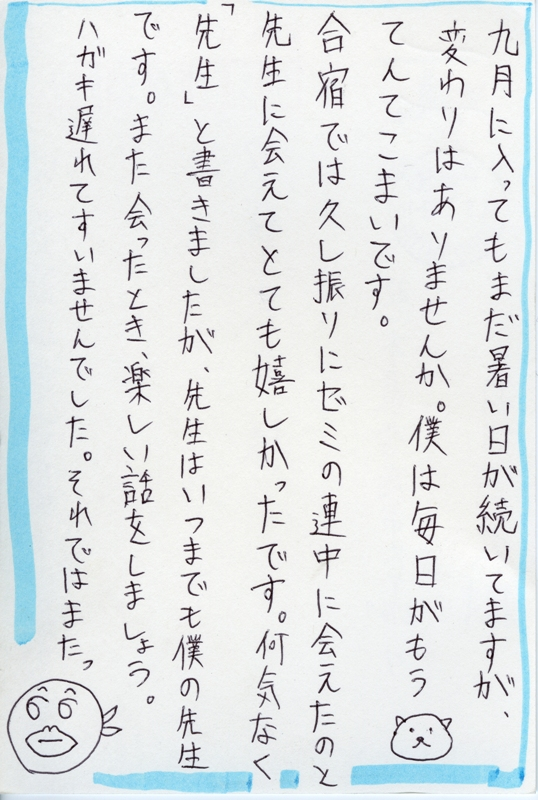 九月に入ってもまだ暑い日が続いてますが、
変わりはありませんか。僕は毎日がもう
てんてこまいです。
合宿では久し振りにゼミの連中に会えたのと
先生に会えてとても嬉しかったです。何気なく
「先生」と書きましたが、先生はいつまでも僕の先生
です。また会ったとき、楽しい話をしましょう。
ハガキ遅れてすいませんでした。それではまたっ